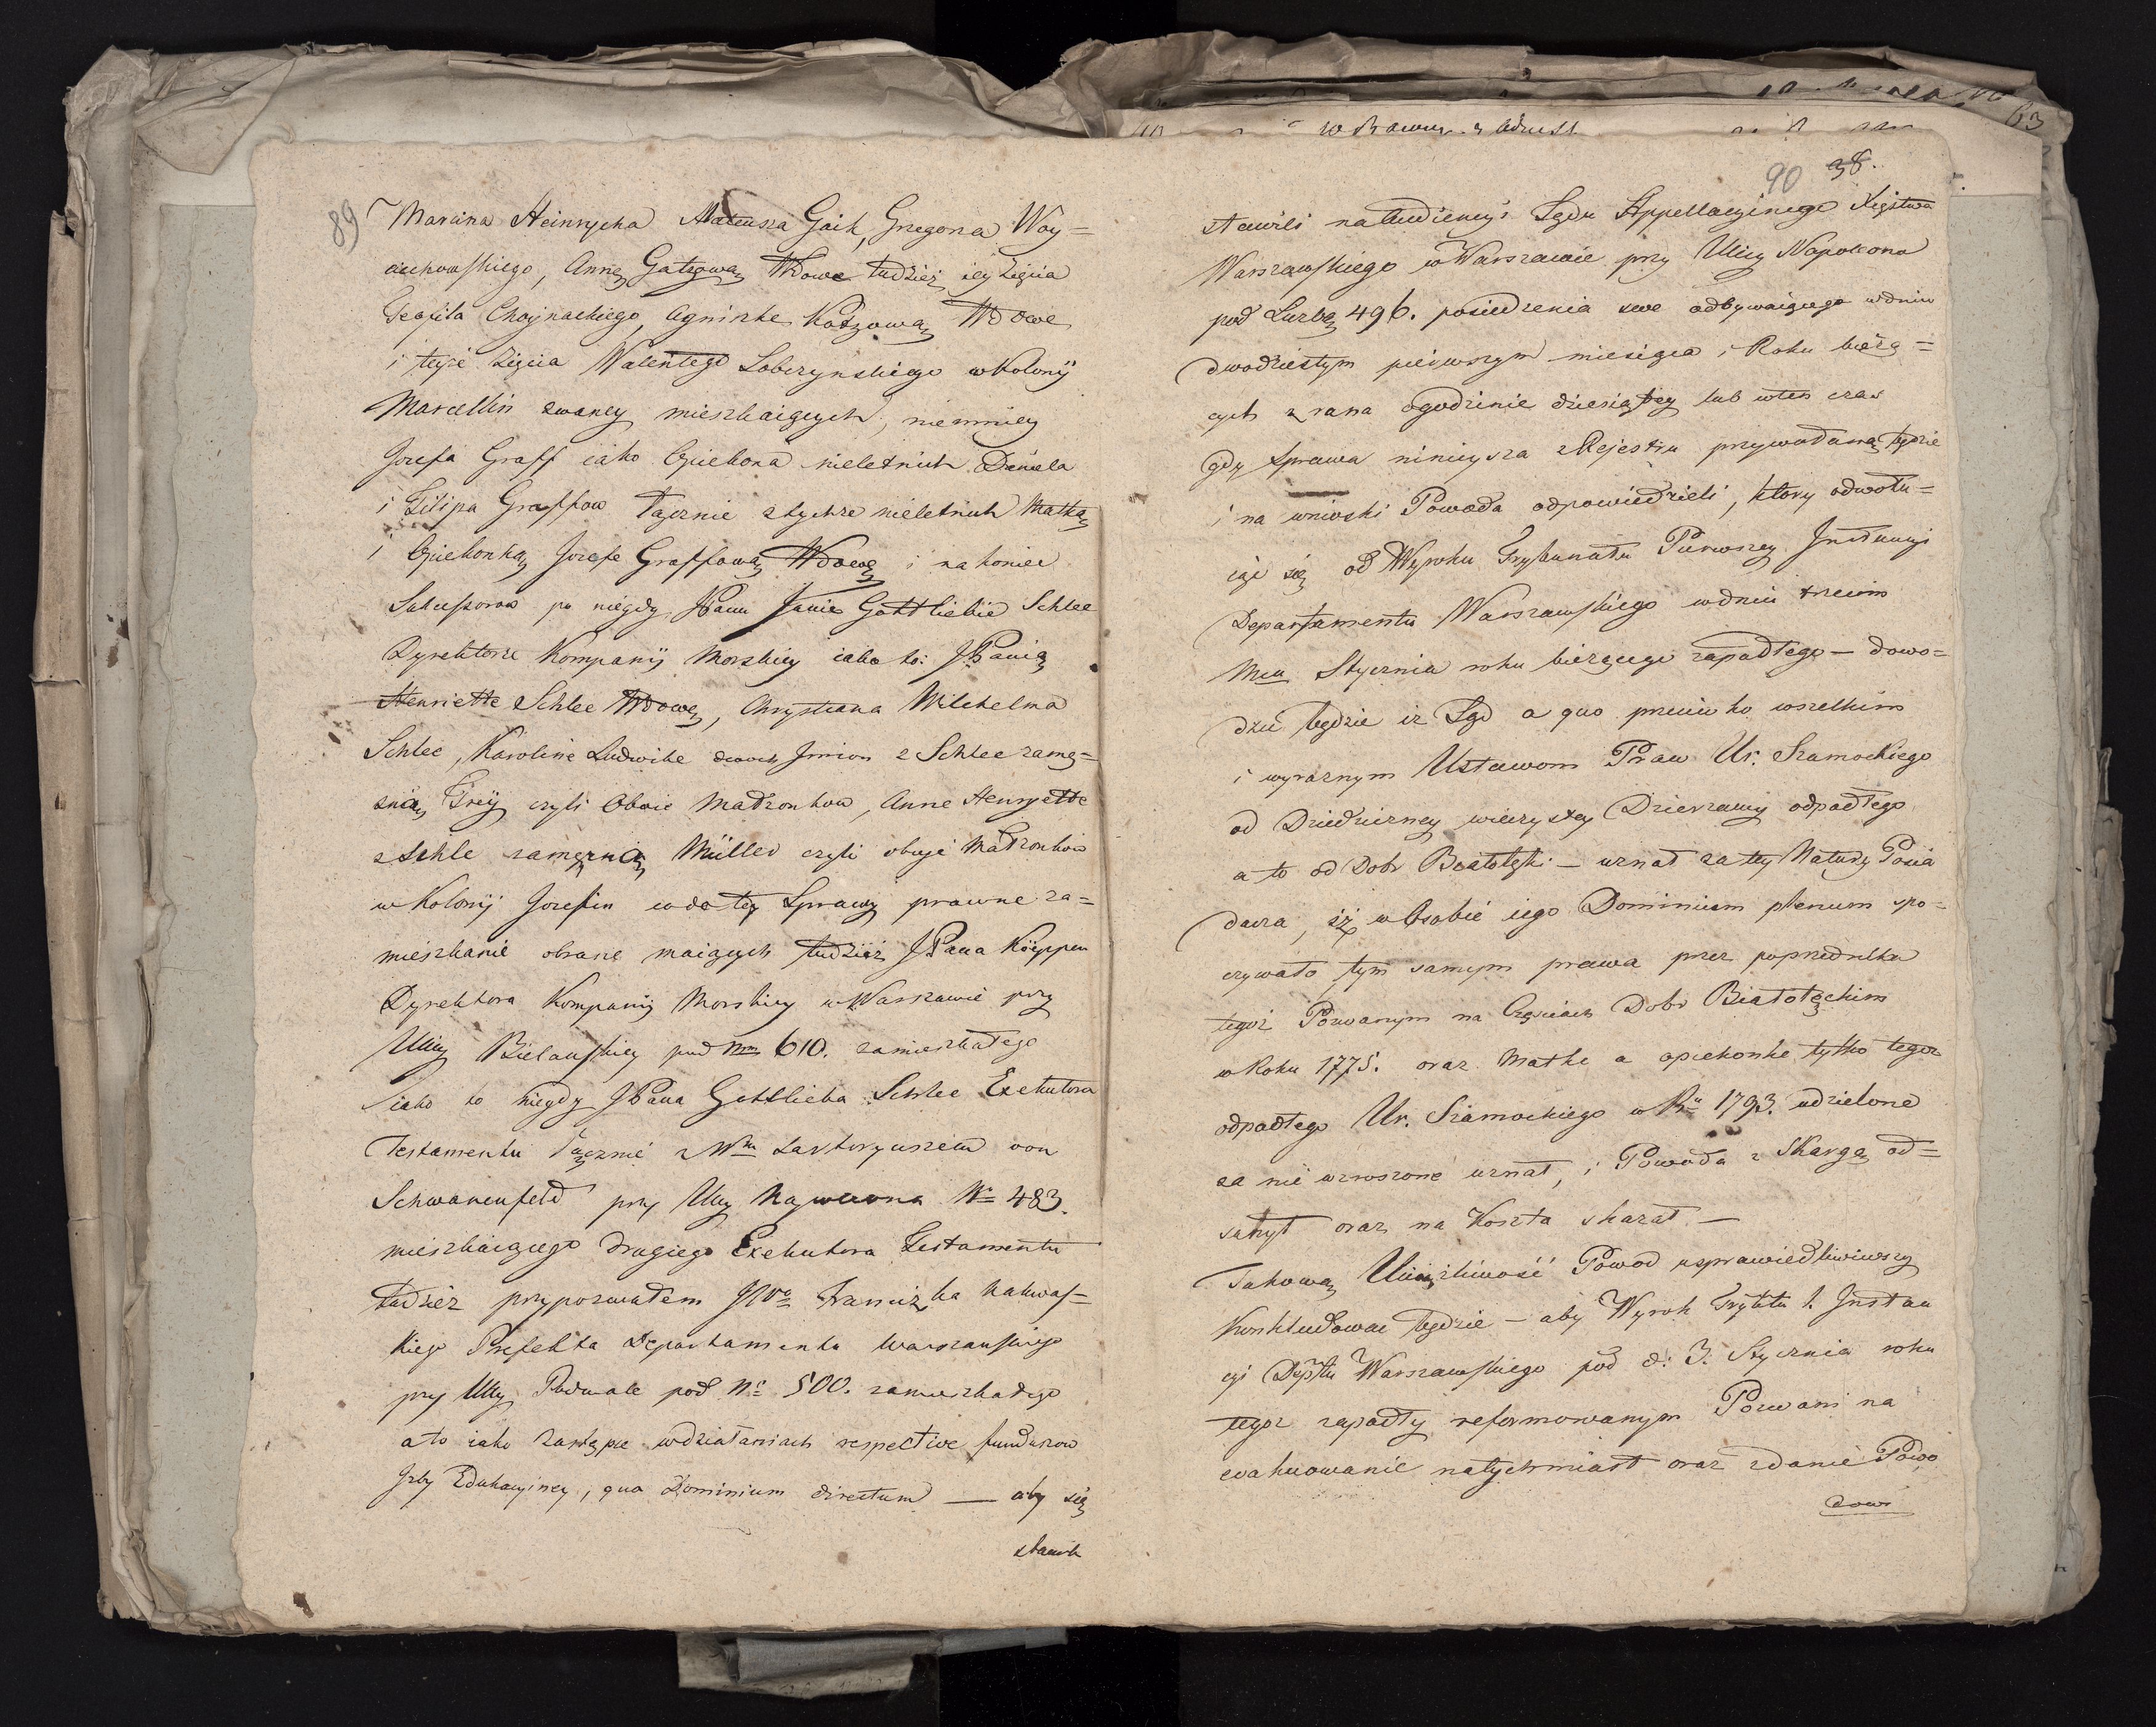 89
Marcina Heinrycha Mateusza Gaik, Grzegorza Woy=
ciechowskiego, Annę Gatzową Wdowę tudzież iey Zięcia
Teofila Choynackiego, Agniszkę Kotzową Wdowę
i teyże Zięcia Walentego Sobczynskiego w Kolonij
Marcellin zwaney mieszkaiących, niemniey
Jozefa Graff iako Opiekona nieletnich Daniela
i Filipa Graffow łącznie z tychże nieletnich Matką
i Opiekonką Jozefę Graffową Wdowę i na koniec
Sukcessorow po niegdy JPanu Janie Gottliebie Schlee
Dyrektorze Kompanij Morskiey iako to: JPanią
Henriettę Schlee Wdowę, Chrystiana Wilchelma
Schlee, Karolinę Ludwikę dwoch Jmion z Schlee zamę=
żną Frey czyli Oboie Małżonkow, Annę Henryettę
z Schle zamężną Müller czyli oboje Małżonkow
w Kolonij Jozefin w do tey Sprawy prawne za=
mieszkanie obrane maiących tudzież JPana Köppen
Dyrektora Kompanij Morskiey w Warszawie przy
Ulicy Bielanskiey pod Nrm 610. zamieszkałego
iako to niegdy JPana Gottlieba Schlee Exekutora
Testamentu łącznie z Wm Sartoryuszem von
Schwanenfeld przy Ulicy Nº 483.
mieszkaiącego drugiego Exekutora Testamentu
tudzież przypozwałem JWo Franciszka Nakwas=
kiego Prefekta Departamentu Warszawskiego
przy Ulicy Podwale pod Nº 500. zamieszkałego
a to iako Zastępcę w działaniach respective funduszow
Jzby Edukacyiney, qua Dominium directum — aby się
stawili
90 38.
stawili na Audiencyi Sądu Appellacyinego Xięstwa
Warszawskiego w Warszawie przy Ulicy Napoleona
pod Liczbą 496. posiedzenia swe odbywaiącego w dniu
dwodziestym pierwszym miesiąca i Roku bieżą=
cych z rana o godzinie dziesiątey lub w ten czas
gdy Sprawa ninieysza z Rejestru przywołaną będzie
i na wnioski Powoda odpowiedzieli, ktory odwołu=
iąc się od Wyroku Trybunału Pierwszey Jnstancyi
Departamentu Warszawskiego w dniu trzecim
Mca Stycznia roku bieżącego zapadłego — dowo=
dzić będzie iż Sąd a quo przeciwko wszelkim
i wyraznym Ustawom Praw Ur. Szamockiego
od Dziedziczney wieczystey Dzierzawy odpadłego
a to od Dobr Białołęki — uznał za tey Natury Posia
dacza, iż w Osobie iego Dominium plenum spo=
czywało, tym samym prawa przez poprzednika
tegoż Pozwanym na Częściach Dobr Białołęckim
w Roku 1775. oraz Matkę a opiekonkę tylko tegoż
odpadłego Ur. Szamockiego w Ru 1793. udzielone
za nie wzruszone uznał, i Powoda z Skargą od=
sałył oraz na Koszta skazał. —
Takową Uciążliwość Powod usprawiedliwiwszy
Konkludować będzie — aby Wyrok Trybłu 1. Jnstan
cyi Deptu Warszawskiego pod d: 3. Stycznia roku
tegoż zapadły reformowanym Pozwani na
ewakuowanie natychmiast oraz zdanie Powo
dowi